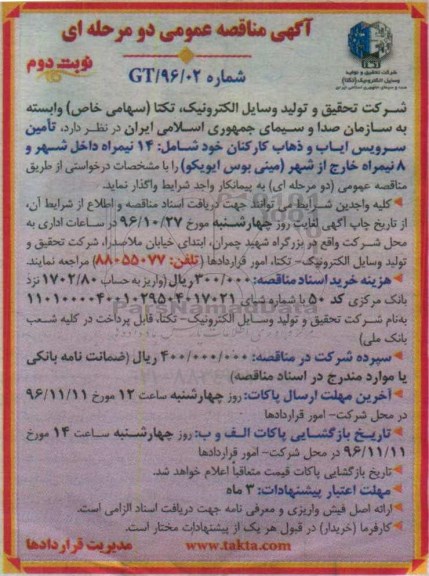 آگهی مناقصه عمومی دو مرحله ای
نوبت دوم
شماره GT/۹۶/۰۲
شرکت تحقیق و تولید
وسایل الکترونیک (تکتا)
شرکت تحقیق و تولید وسایل الکترونیک، تکتا (سهامی خاص) وابسته
به سازمان صدا و سیمای جمهوری اسلامی ایران در نظر دارد، تأمین
سرویس ایاب و ذهاب کارکنان خود شامل: ۱۴ نیمراه داخل شهر و
۸ نیمراه خارج از شهر (مینی بوس ایویکو) را با مشخصات درخواستی از طریق
مناقصه عمومی (دو مرحله ای) به پیمانکار واجد شرایط واگذار نماید.
کلیه واجدین شرایط می توانند جهت دریافت اسناد مناقصه و اطلاع از شرایط آن،
از تاریخ چاپ آگهی لغایت روز چهارشنبه مورخ ۹۶/۱۰/۲۷ در ساعات اداری به
محل شرکت واقع در بزرگراه شهید چمران، ابتدای خیابان ملاصدرا، شرکت تحقیق و
تولید وسایل الکترونیک- تکتا، امور قراردادها (تلفن: ۸۸۰۵۵۰۷۷) مراجعه نمایند.
هزینه خرید اسناد مناقصه: ۳۰۰/۰۰۰ ریال (واریز به حساب ۱۷۰۲/۸۰ نزد
بانک مرکزی کد ۵۰ با شماره شبای ۱۱۰۱۰۰۰۰۴۰۰۱۰۲۹۵۰۴۰۱۷۰۲۱
به‌نام شرکت تحقیق و تولید وسایل الکترونیک- تکتا، قابل پرداخت در کلیه شعب
بانک ملی)
ParsNamadData
سپرده شرکت در مناقصه: ۴۰۰/۰۰۰/۰۰۰ ریال (ضمانت نامه بانکی
یا موارد مندرج در اسناد مناقصه)
آخرین مهلت ارسال پاکات: روز چهارشنبه ساعت ۱۲ مورخ ۹۶/۱۱/۱۱
در محل شرکت- امور قراردادها
تاریخ بازگشایی پاکات الف و ب: روز چهارشنبه ساعت ۱۴ مورخ
۹۶/۱۱/۱۱ در محل شرکت- امور قراردادها
تاریخ بازگشایی پاکات قیمت متعاقباً اعلام خواهد شد.
مهلت اعتبار پیشنهادات: ۳ ماه
ارائه اصل فیش واریزی و معرفی نامه جهت دریافت اسناد الزامی است.
کارفرما (خریدار) در قبول هر یک از پیشنهادات مختار است.
www.takta.com مدیریت قراردادها